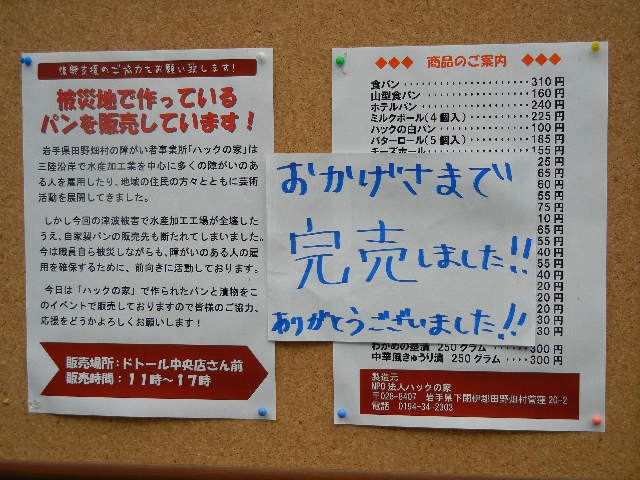 復興支援のご協力をお願い致します!
被災地で作っている
パンを販売しています!
岩手県田野畑村の障がい者事業所「ハックの家」は
三陸沿岸で水産加工業を中心に多くの障がいのあ
る人を雇用したり、地域の住民の方々とともに芸術
活動を展開してきました。
しかし今回の津波被害で水産加工工場が全壊した
うえ、自家製パンの販売先も断たれてしまいました。
今は職員自ら被災しながらも、障がいのある人の雇
用を確保するために、前向きに活動しております。
今日は「ハックの家」で作られたパンと漬物をこ
のイベントで販売しておりますので皆様のご協力、
応援をどうかよろしくお願いします!
販売場所:ドトール中央店さん前
販売時間:11時〜17時
おかげさまで
完売しました!!
ありがとうございました!!
商品のご案内
食パン 310円
山型食パン 160円
ホテルパン 240円
ミルクボール(4個入) 225円
ハックの白パン 100円
バターロール(5個入) 185円
チーズホール 155円
わかめの茎漬 250グラム 300円
中華風きゅうり漬 250グラム 300円
製造元
NPO法人ハックの家
〒028-8407 岩手県下閉伊郡田野畑村菅窪20-2
電話 0194-34-2303